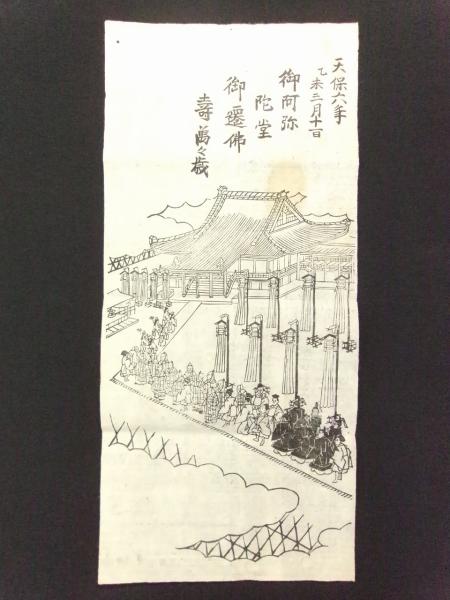 天保六年
乙未三月十一日
御阿弥
陀堂
御遷佛
壽萬々歳